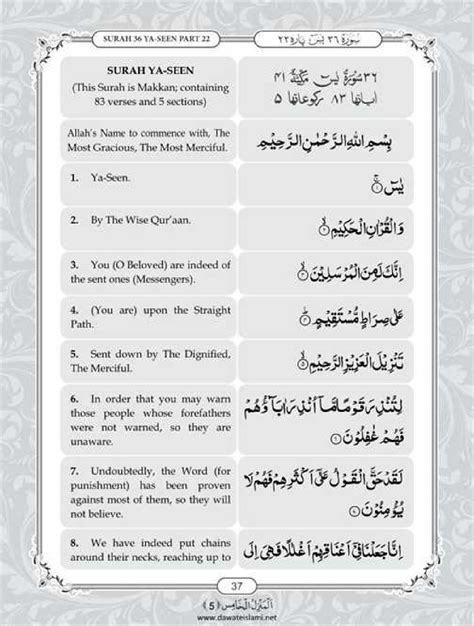 SURAH 36 YA-SEEN PART 22
سورة ٣٦ يس پاره ٢٢
SURAH YA-SEEN
(This Surah is Makkan; containing
83 verses and 5 sections)
٣٦ سورة يس مكية ٤١
اياتها ٨٣ ركوعاتها ٥
Allah's Name to commence with, The
Most Gracious, The Most Merciful.
بِسْمِ اللهِ الرَّحْمٰنِ الرَّحِيْمِ
1. Ya-Seen.
يٰسٓ ۚ﴿١﴾
2. By The Wise Qur'aan.
وَالْقُرْاٰنِ الْحَكِيْمِ ﴿٢﴾
3. You (O Beloved) are indeed of
the sent ones (Messengers).
اِنَّكَ لَمِنَ الْمُرْسَلِيْنَ ﴿٣﴾
4. (You are) upon the Straight
Path.
عَلٰى صِرَاطٍ مُّسْتَقِيْمٍ ﴿٤﴾
5. Sent down by The Dignified,
The Merciful.
تَنْزِيْلَ الْعَزِيْزِ الرَّحِيْمِ ﴿٥﴾
6. In order that you may warn
those people whose forefathers
were not warned, so they are
unaware.
لِتُنْذِرَ قَوْمًا مَّاۤ اُنْذِرَ اٰبَآؤُهُمْ
فَهُمْ غٰفِلُوْنَ ﴿٦﴾
7. Undoubtedly, the Word (for
punishment) has been proven
against most of them, so they will
not believe.
لَقَدْ حَقَّ الْقَوْلُ عَلٰۤى اَكْثَرِهِمْ فَهُمْ لَا
يُؤْمِنُوْنَ ﴿٧﴾
8. We have indeed put chains
around their necks, reaching up to
اِنَّا جَعَلْنَا فِيْۤ اَعْنَاقِهِمْ اَغْلٰلًا فَهِيَ اِلَى
37
اَلْمَنْزِلُ الْخَامِس ﴿5﴾
www.dawateislami.net